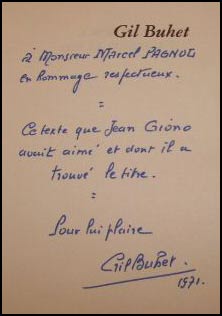 Gil Buhet
à Monsieur Marcel PAGNOL
en hommage respectueux.
=
Ce texte que Jean Giono
avait aimé et dont il a
trouvé le titre.
=
Pour lui plaire
Gil Buhet.
1971.